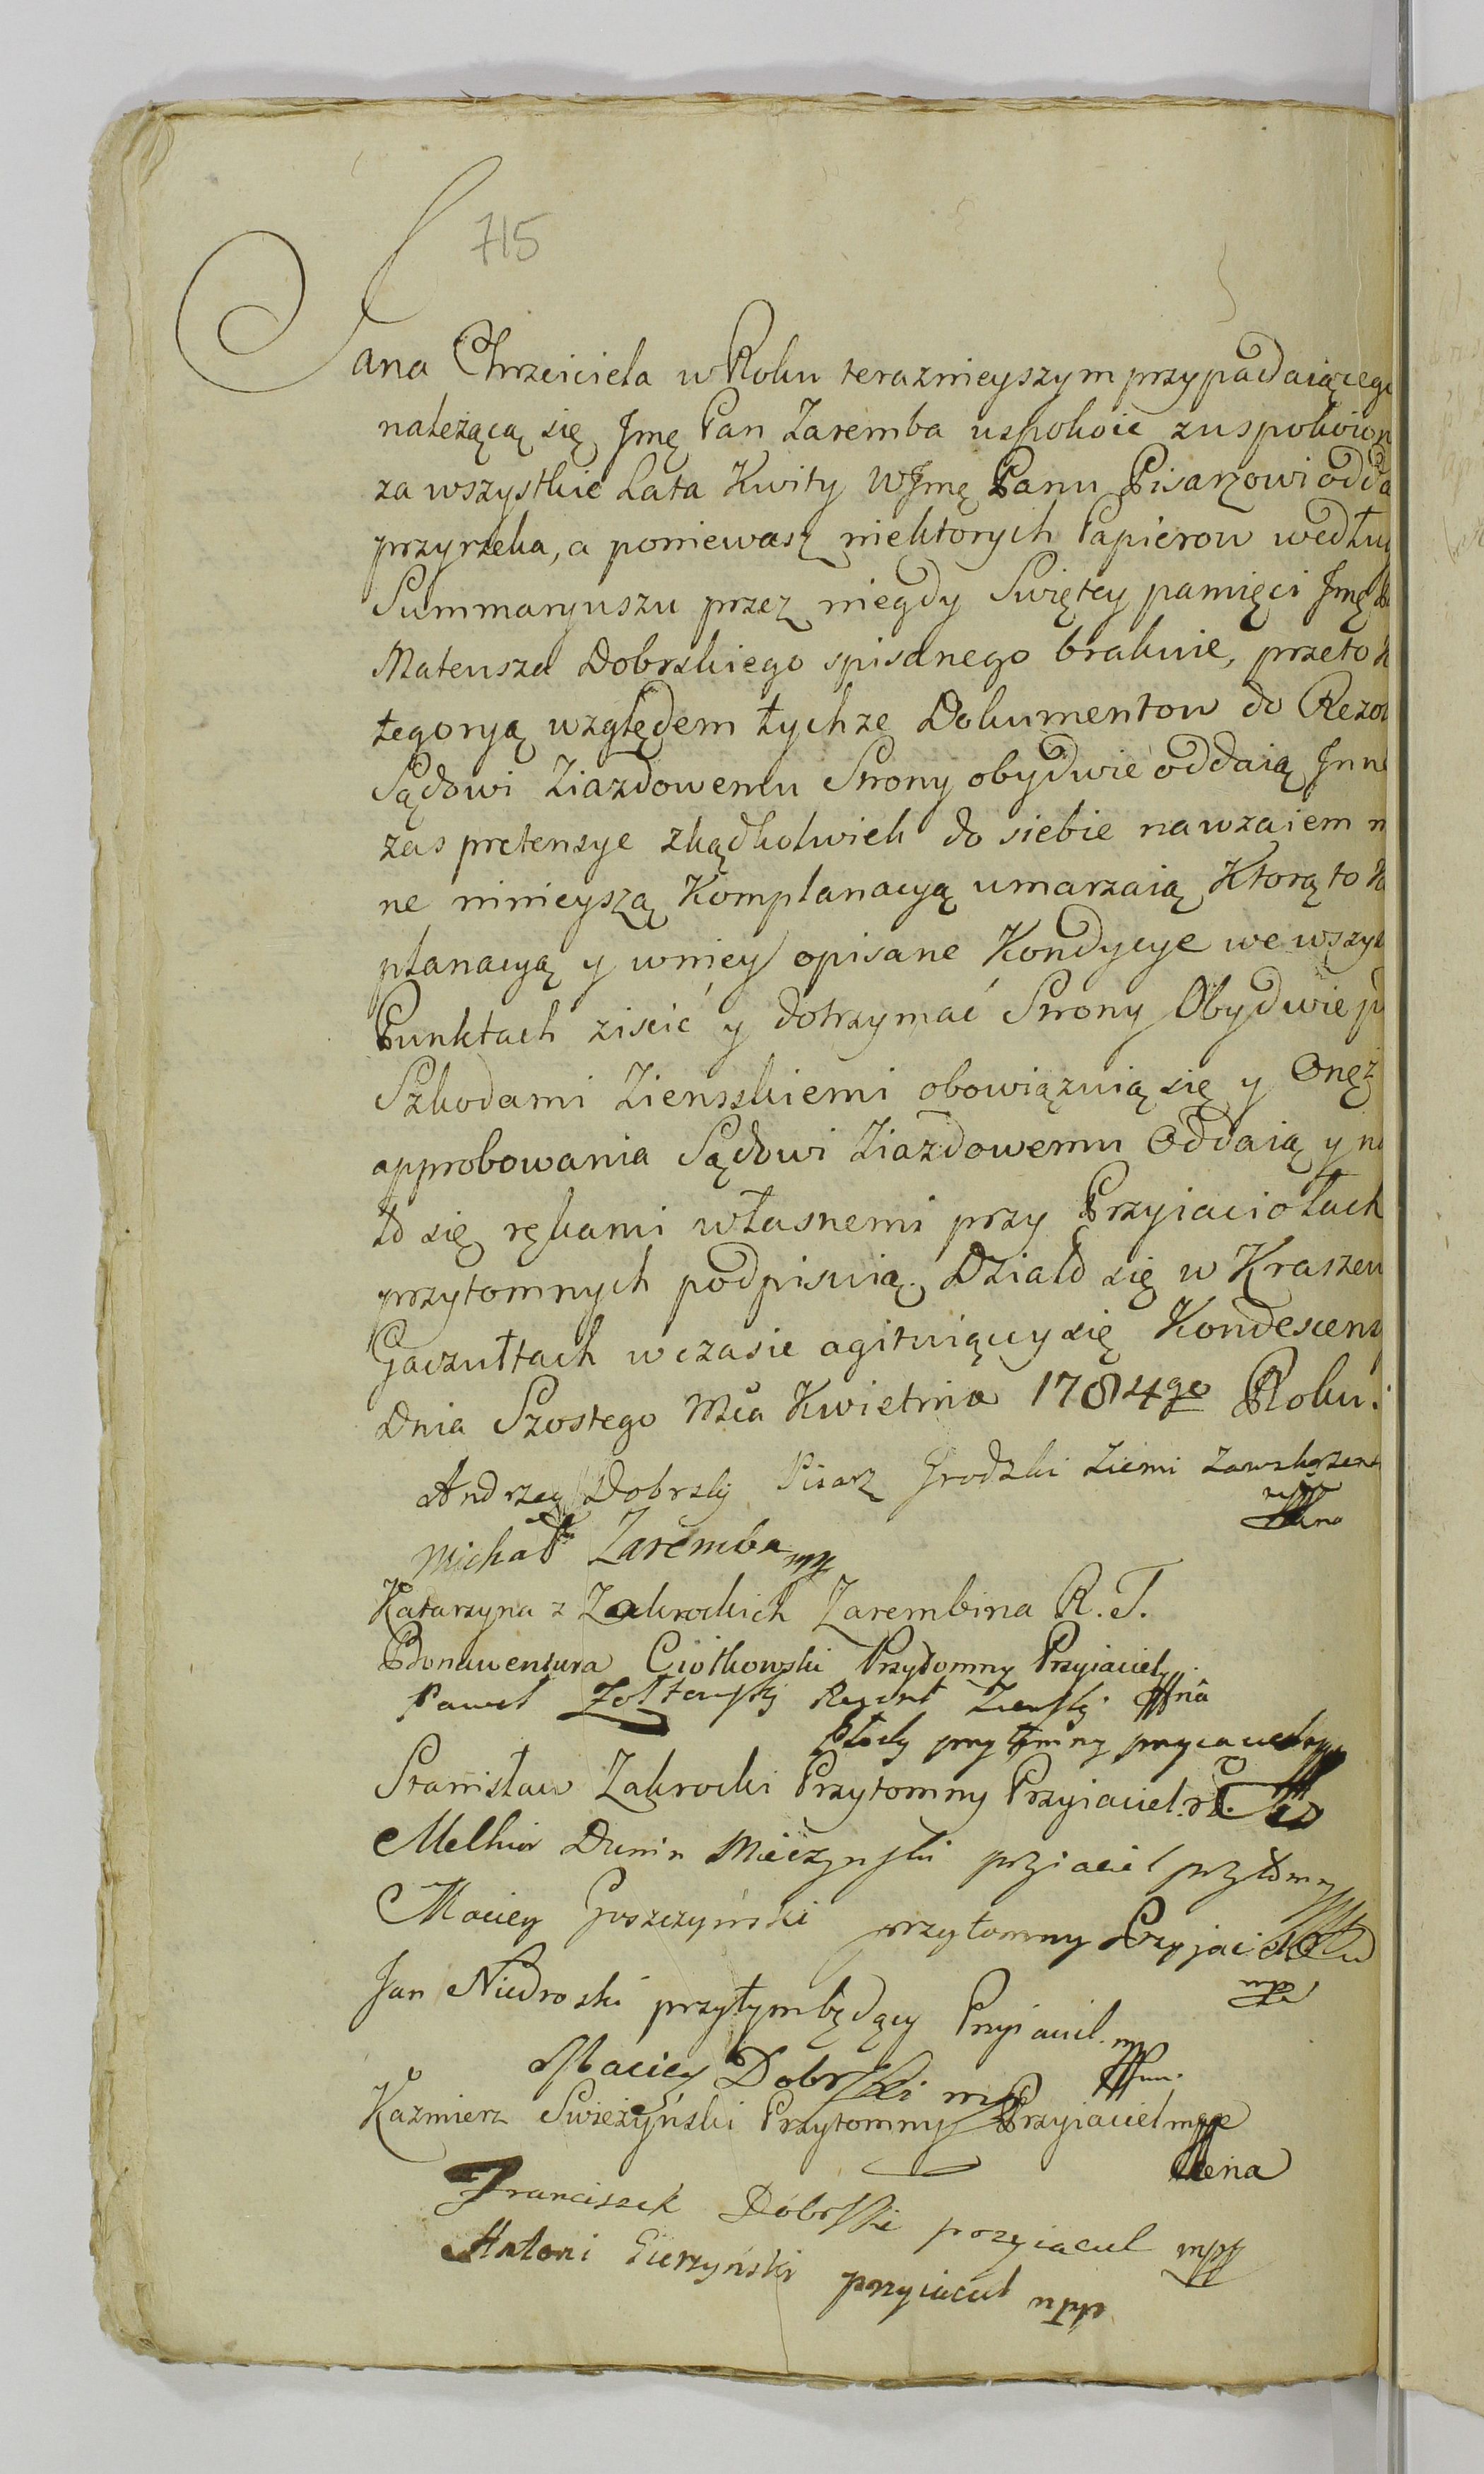 715
Jana Chrzciciela w Roku teraznieyszym przypadaiącego
należącą się Jmę Pan Zaremba uspokoic zuspokoion
za wszystkie Lata Kwity WJmę Panu Pisarzowi odda
przyrzeka, a poniewasz niektorych Papierow wedłu
Summaryuszu przez niegdy Swiętey pamięci Jmę
Mateusza Dobrskiego spisanego brakuie, przeto k
tegoryą względem tychze Dokumentow do Rezol
Sądowi Ziazdowemu Strony obydwie oddaią Jnn
zas pretensye zkądkolwiek do siebie nawzaiem
ne ninieyszą Komplanacyą umarzaią Ktorą to K
planacyą y wniey opisane Kondycye we wszys
Punktach zisció y dotrzymać Strony Obydwie p
Szkodami Ziemskiemi obowiązuią się y Onęż
approbowania Sądowi Ziazdowemu Oddaią y n
to się rękami własnemi przy Przyiaciołach
przytomnych podpisuią. Działo się w Kraszew
Gaczułtach w czasie agituiącey się Kondescens
Dnia Szostego Mca Kwietnia 1784go Roku.
Andrzey Dobrsky Pisarz Grodzki Ziemi Zawskrzens
mpp
Michał Zaremba mpp
Katarzyna z Zakrockich Zarembina R. T.
Bonawentura Ciołkowski Przytomny Przyiaciel
Paweł Zołtowsky Regent Ziemsky
Płocky przytomny przyiaciel mpp
Stanisław Zakrocki Przytomny Przyiaciel
Melhior Dunin Mieczynski przyiaciel przytomny
Maciey Goszczyński przytomny Przyjaciel
mpp
Jan Niedroski przytym będący Przyiaciel mpp
Maciey Dobrski mpp
Kazmierz Swiezyński Przytomny Przyiaciel mpp
Franciszek Dobrski przyiaciel mpp
Antoni Gierzyński przyiaciel mpp